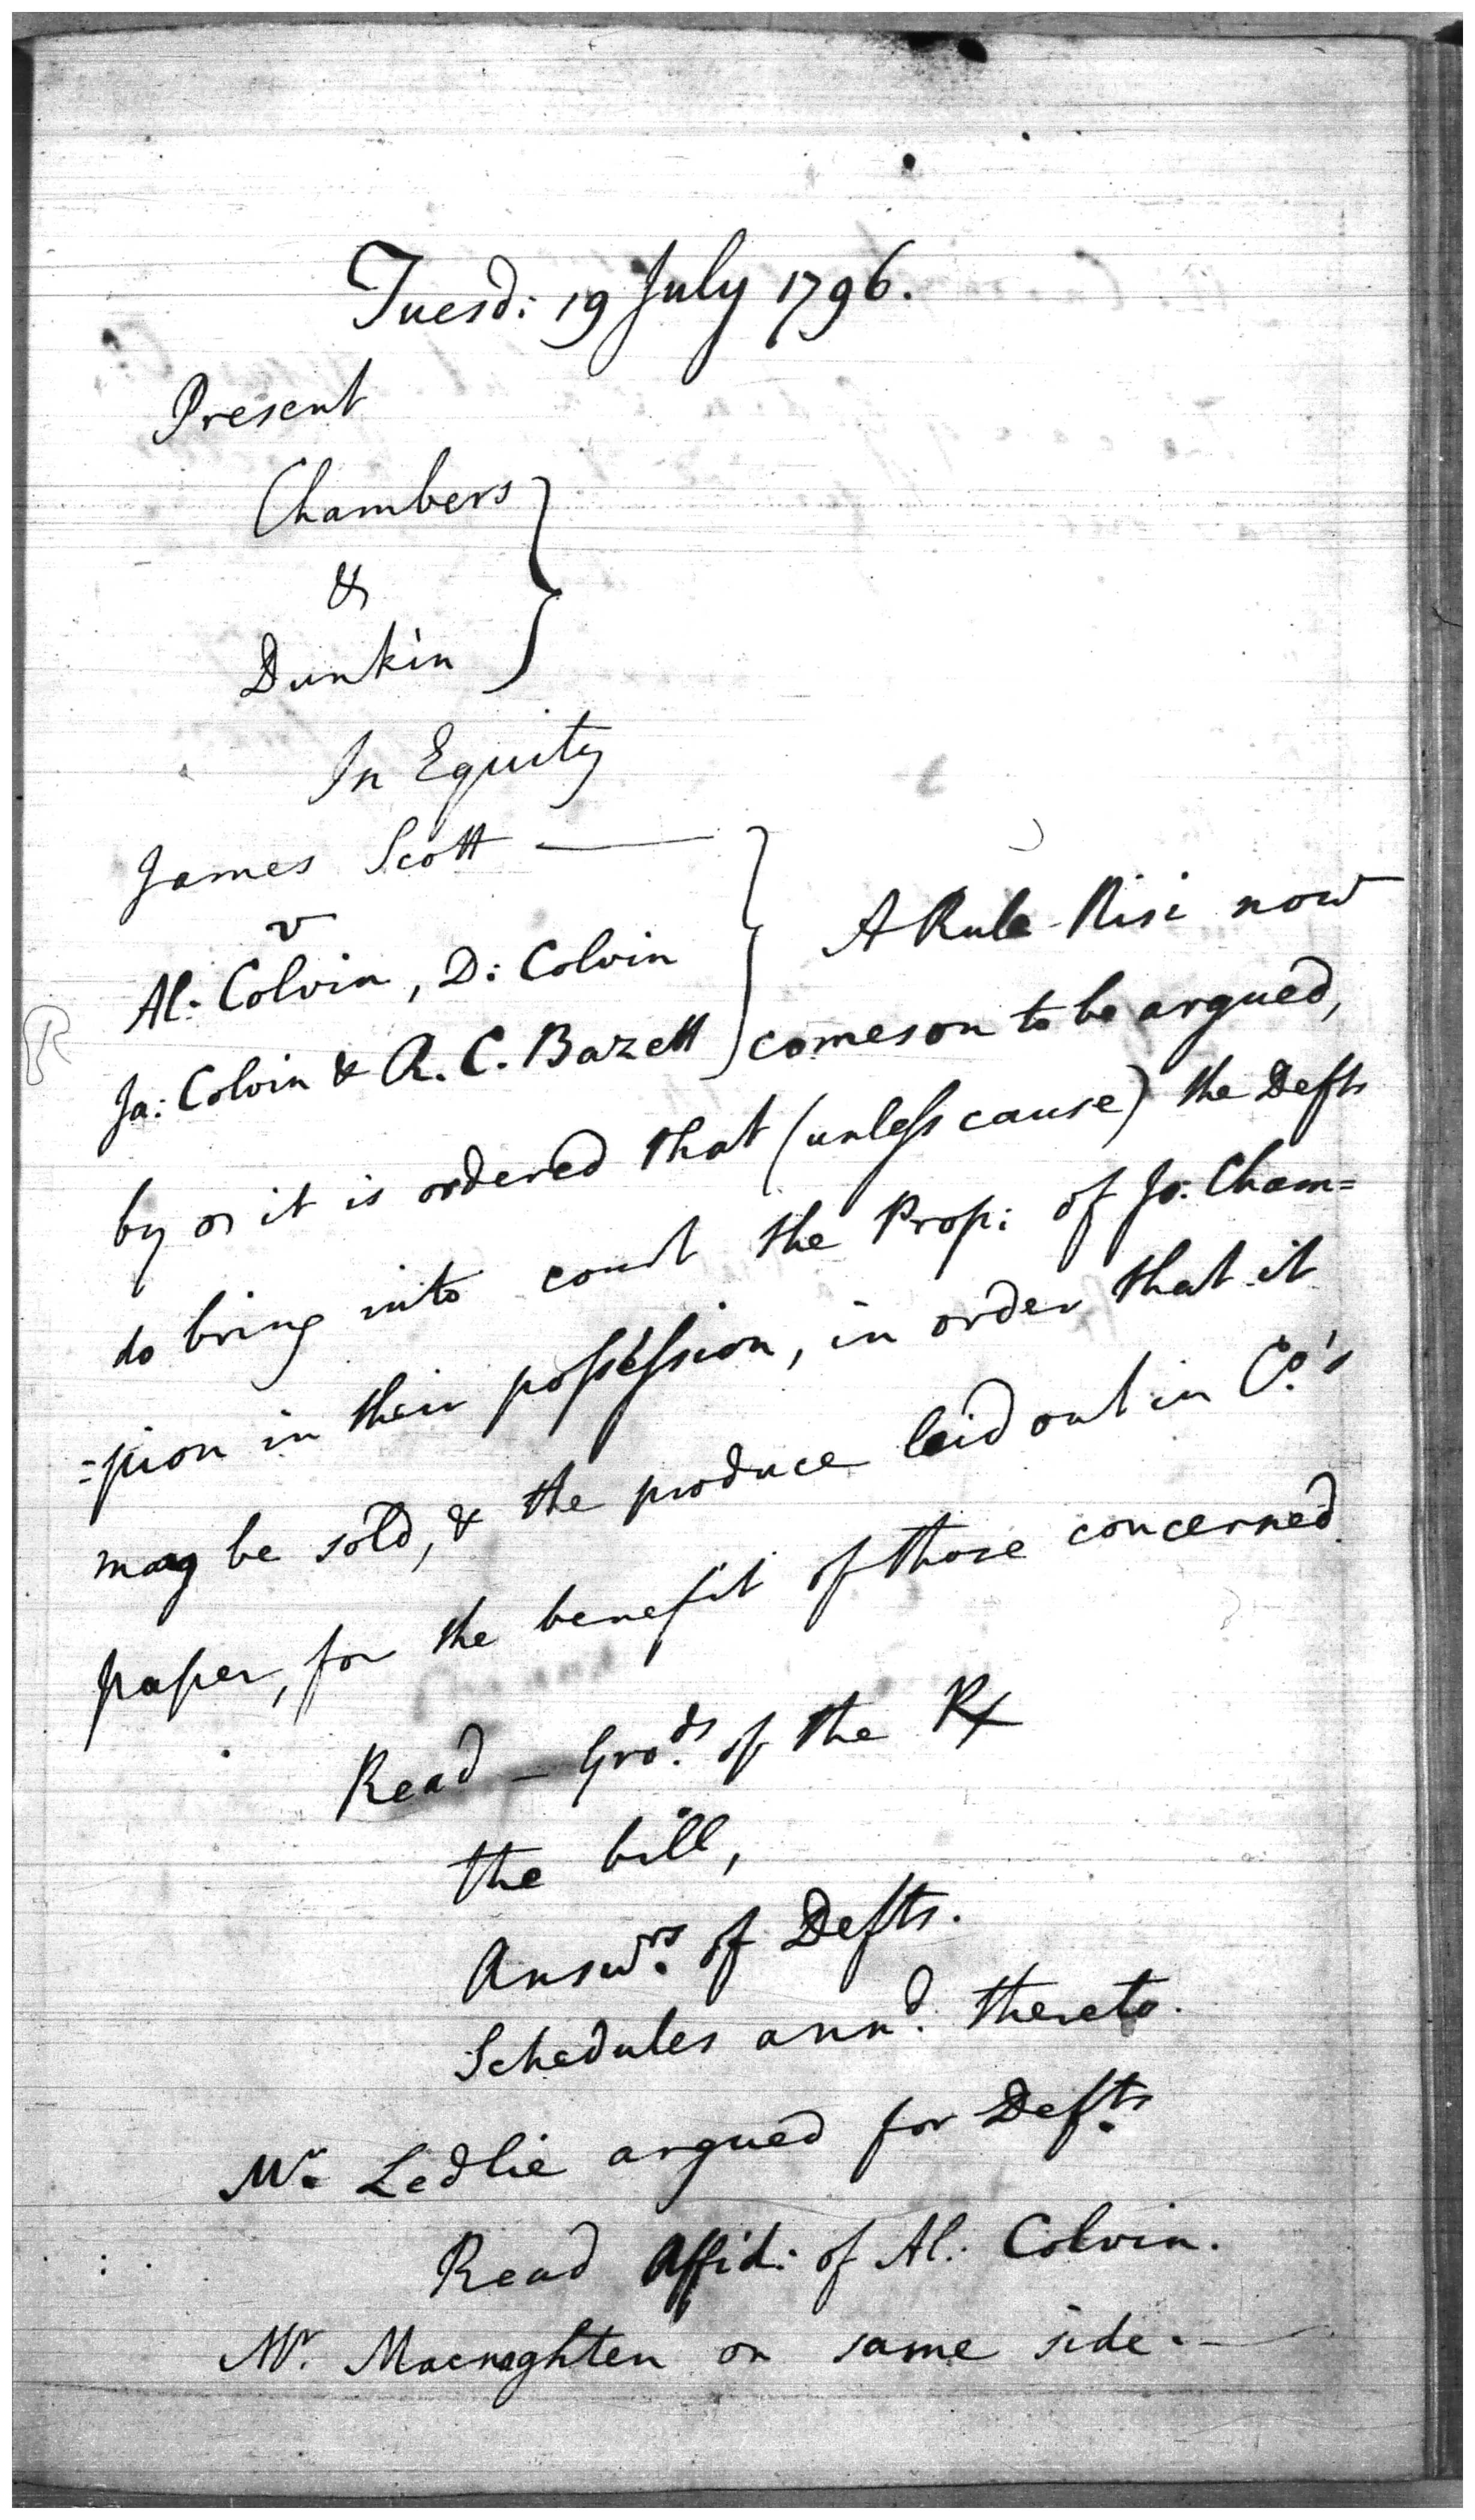 Tuesd: 19 July 1796.
Present
Chambers
&
Dunkin
In Equity
James Scott —
v
Al: Colvin, D: Colvin
A Rule Nisi now
Ja: Colvin & A. C. Bazett
comes on to be argued,
by it is ordered that (unless cause) the Defts
do bring into court the Prop: of Jo: Cham=
=pion in their possession, in order that it
may be sold, & the produce laid out in Co.'s
paper, for the benefit of those concerned.
Read — Gro.ds of the R
the bill,
Answ.rs of Defts.
Schedules ann.d thereto.
Mr Ledlie argued for Defts
Read Affid: of Al: Colvin.
Mr. Macnaghten on same side. —